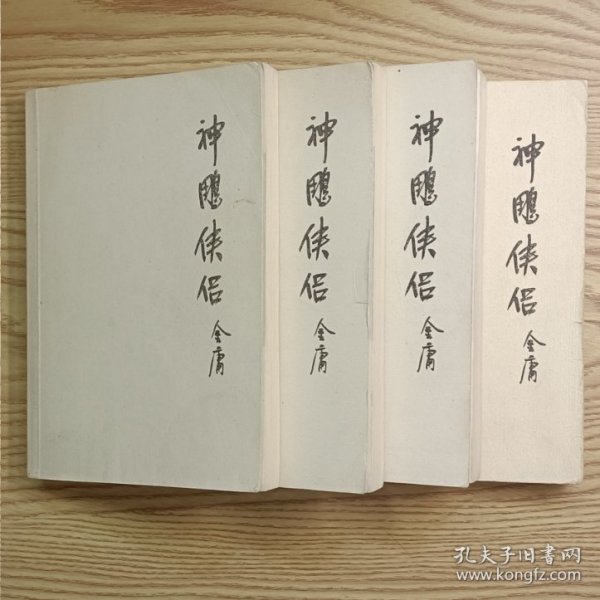 神鵰侠侣
金庸
神鵰侠侣
金庸
神鵰侠侣
金庸
神鵰侠侣
金庸
孔夫子旧书网
www.kongfz.com